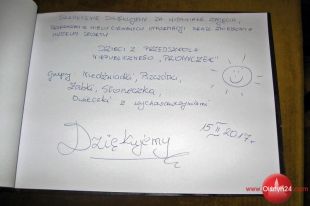 SERDECZNIE DZIĘKUJEMY ZA WSPANIAŁE ZAJĘCIA,
PRZEKAZANIE WIELU CIEKAWYCH INFORMACJI ORAZ ZWIEDZANIE
MUZEUM SPORTU
DZIECI Z PRZEDSZKOLA
NIEPUBLICZNEGO „PROMYCZEK"
Grupy Niedźwiadki, Pszczółki,
Żabki, Słoneczka,
Owieczki z wychowawczyniami
Dziękujemy
15 II 2017r.
www.Olsztyn24.com